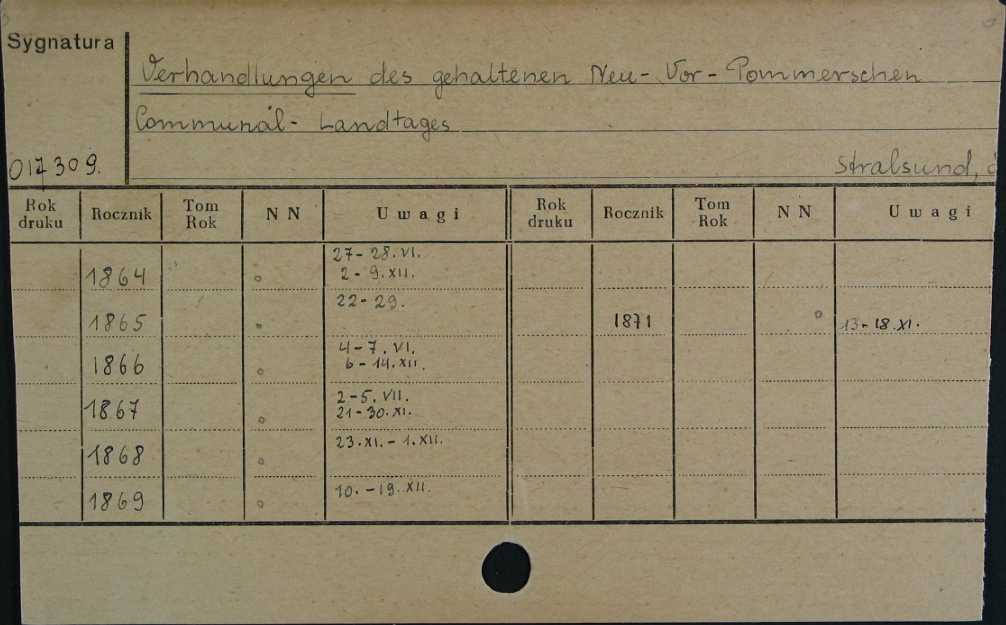 Sygnatura
Verhandlungen des gehaltenen Neu-Vor-Pommerschen
Communal-Landtages
017309. Stralsund,
Rok druku Rocznik Tom Rok NN Uwagi Rok druku Rocznik Tom Rok NN Uwagi
27-28.VI.
1864 2-9.XII.
22-29.
1865 1871 13-18.XI.
4-7.VI.
1866 6-14.XII.
2-5.VII.
1867 21-30.XI.
23.XI.-1.XII.
1868
10.-19.XII.
1869